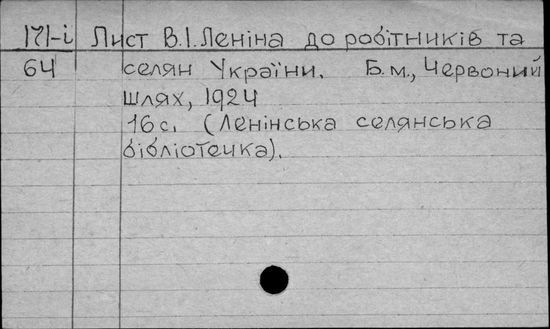 171-і Лист В.І.Леніна до робітників та
64 селян України. Б.м., Червоний
шлях, 1924
16 с. (Ленінська селянська
бібліотечка).